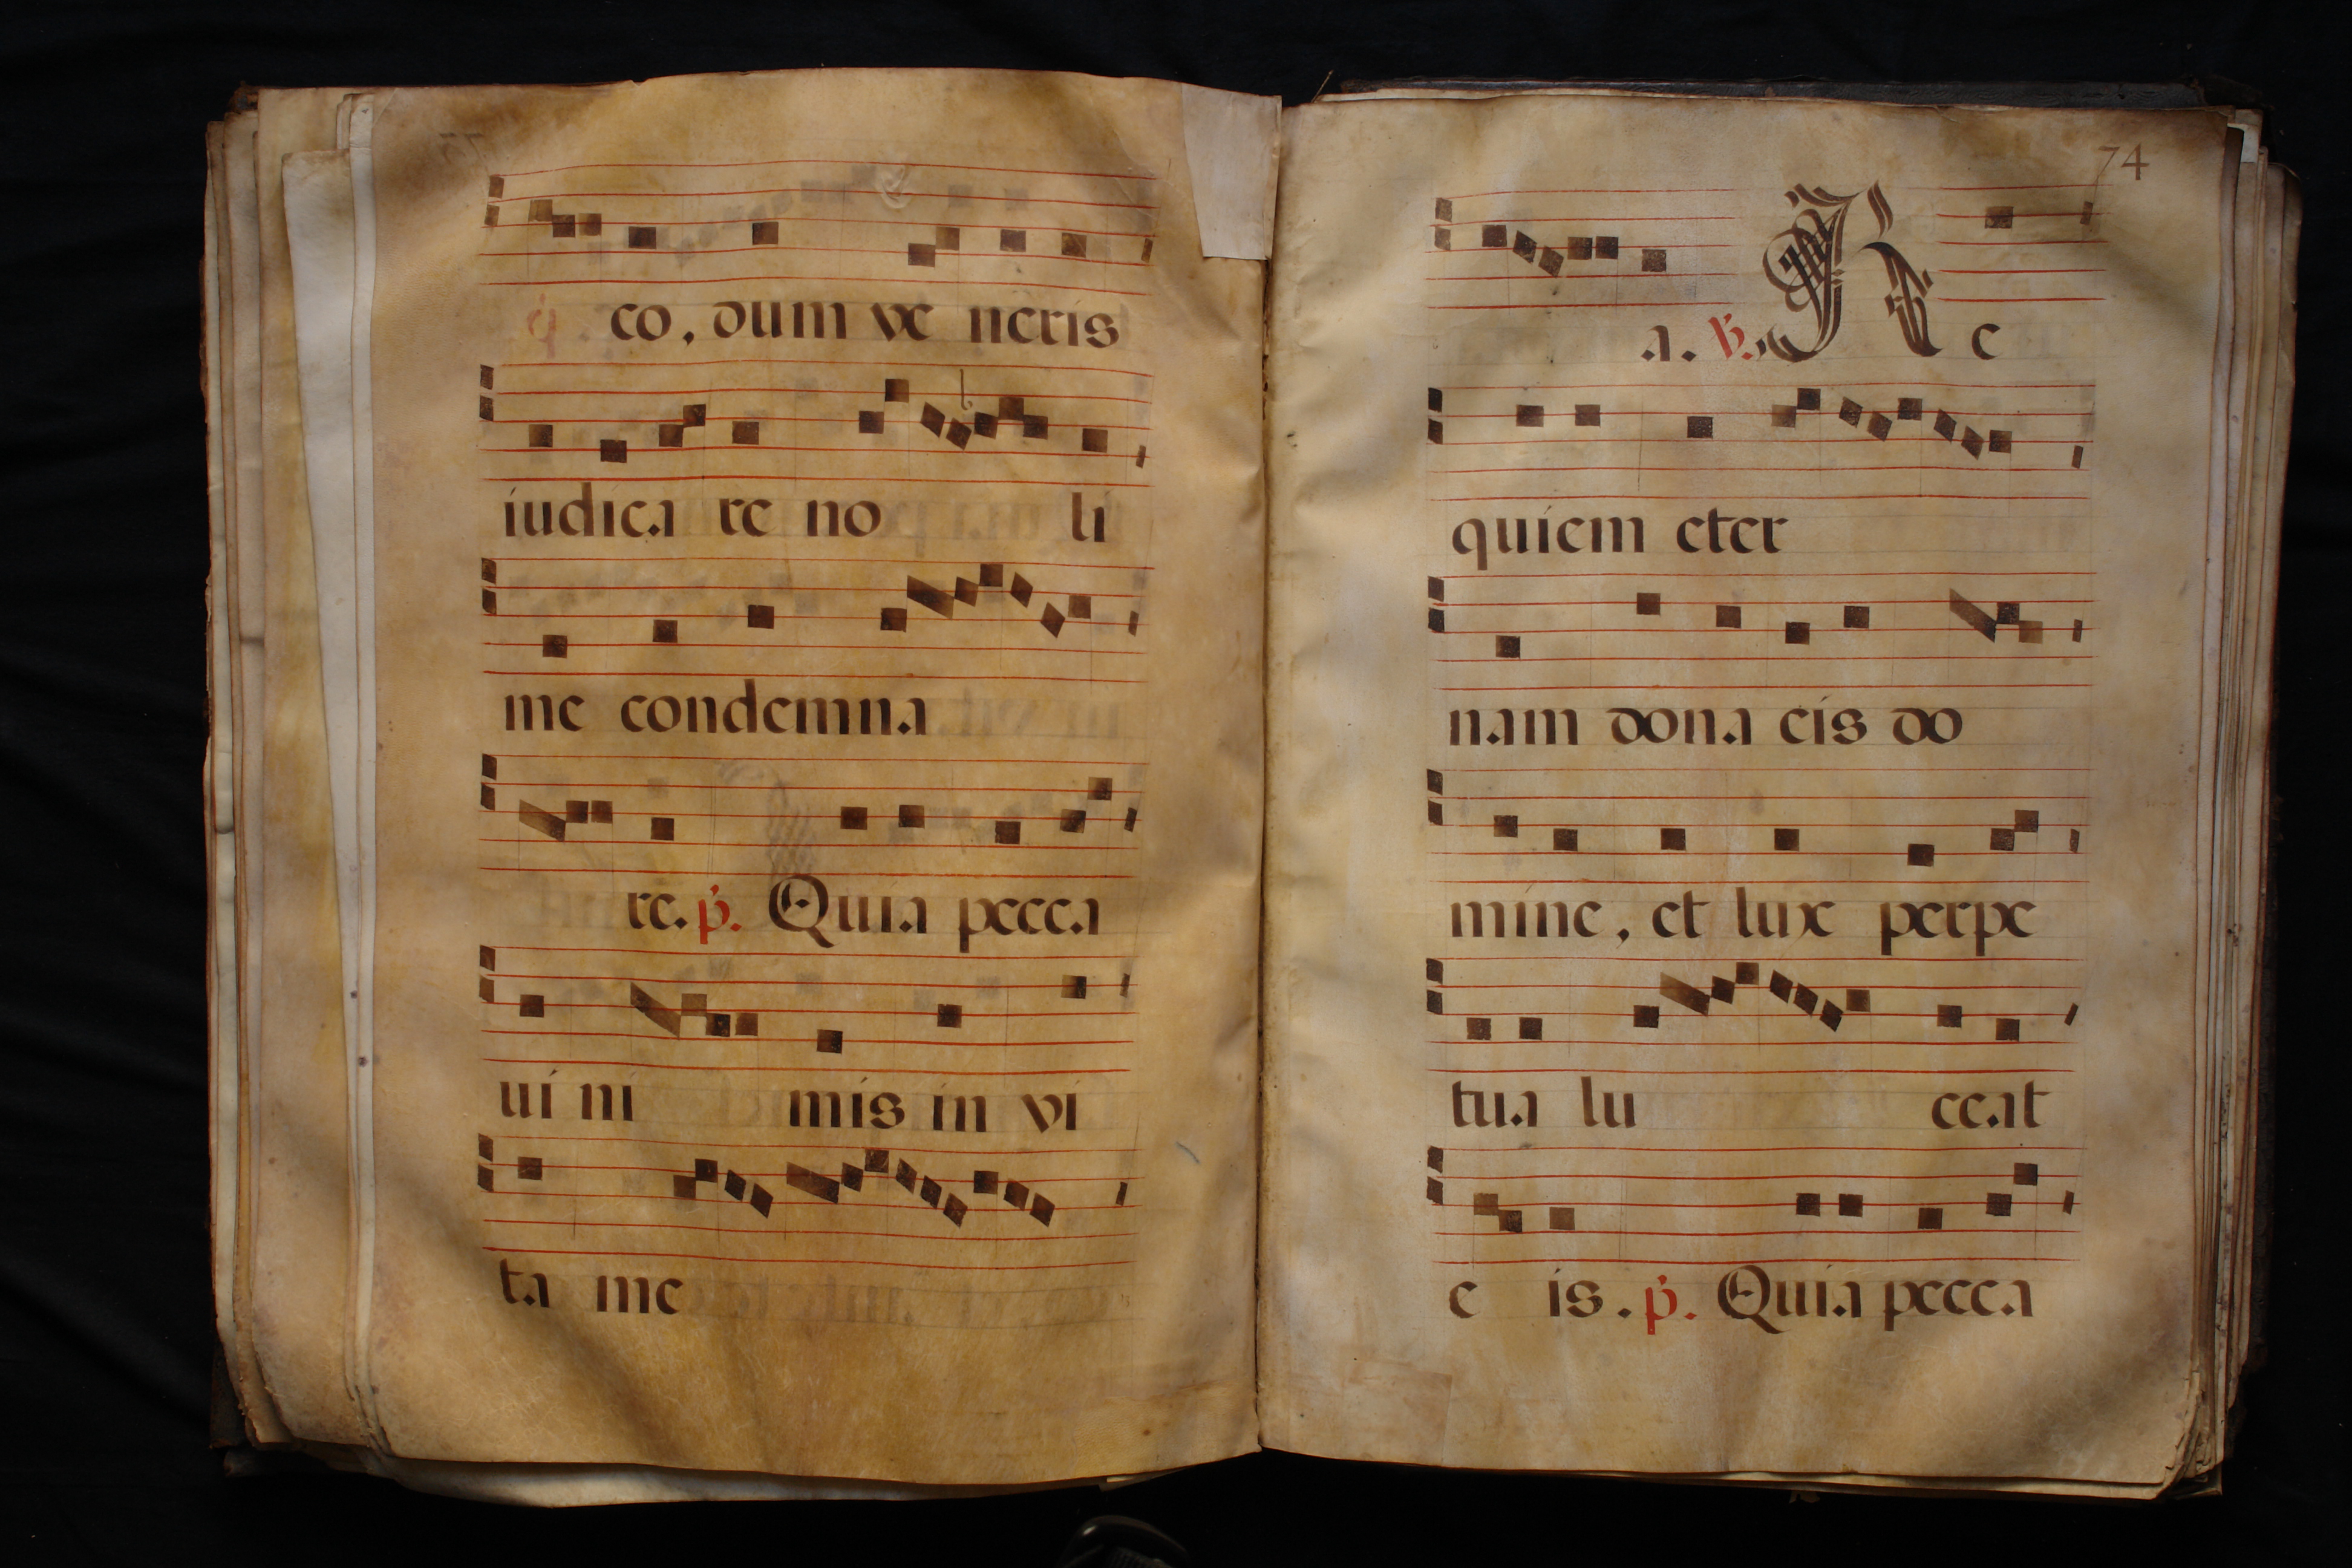 co, dum ve neris
iudica re no li
me condemna
re. p. Quia pecca
ui ni mis in vi
ta me
74
a. V. Re
quiem eter
nam dona eis do
mine, et lux perpe
tua lu ceat
e is. p. Quia pecca